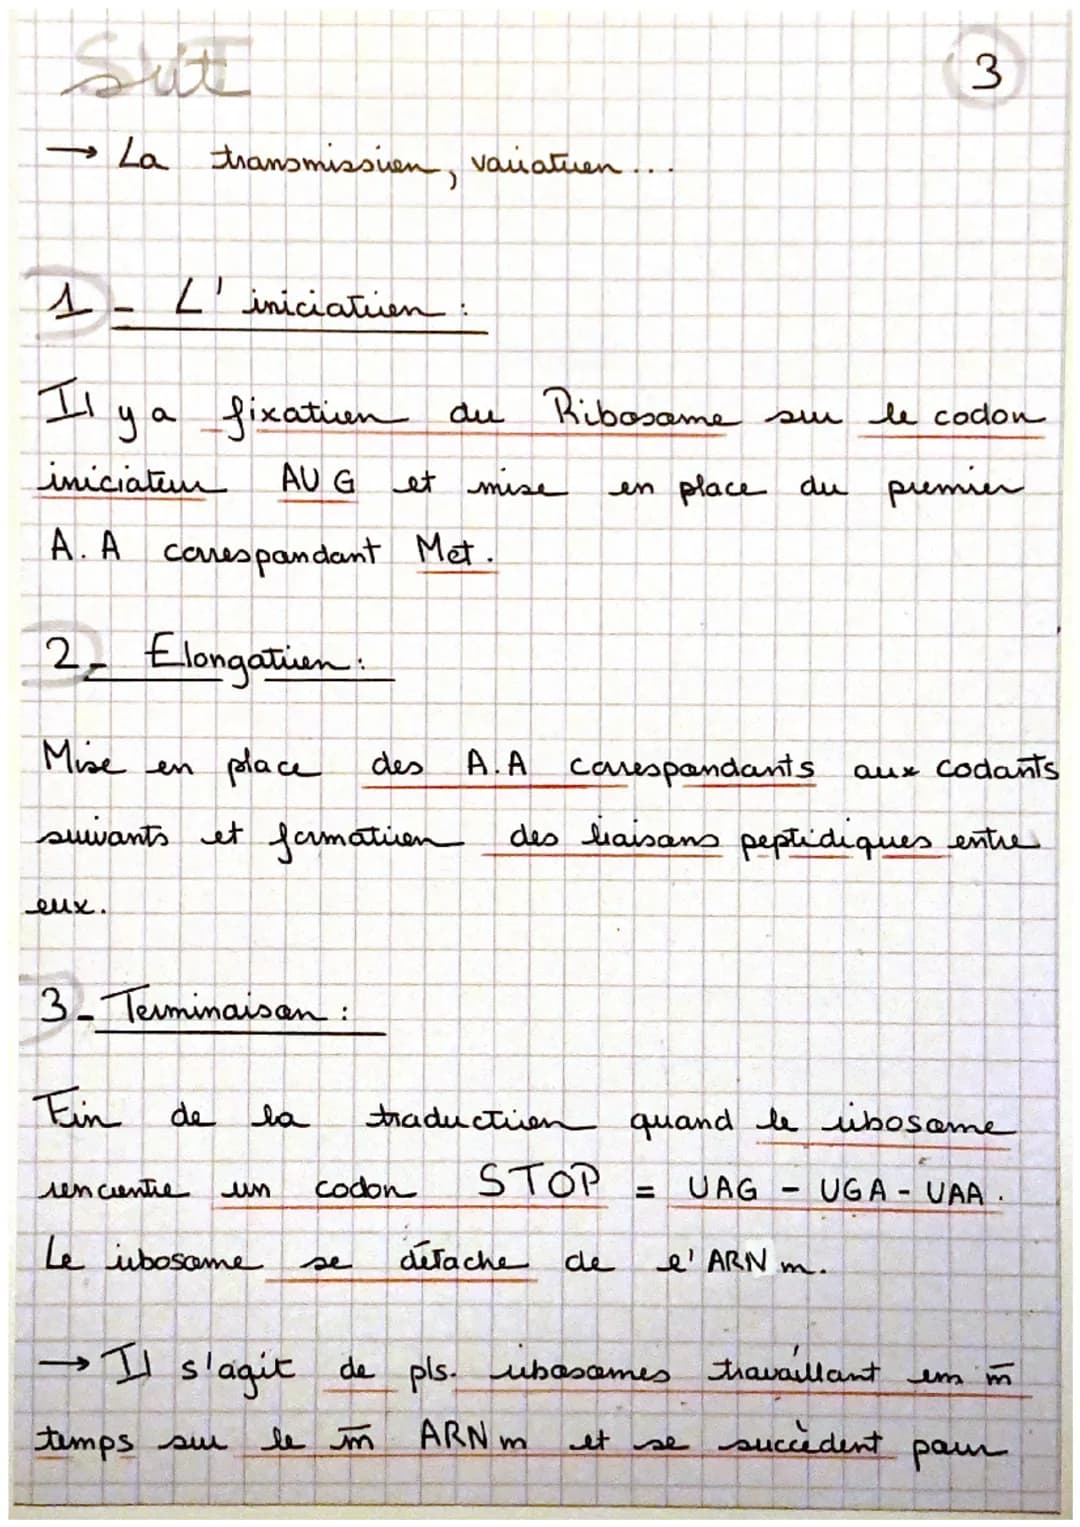 SVT
3
→ La transmission, variation...
1 - L'iniciation :
Il y a fixation du Ribosome sur le codon
iniciateur AUG et mise en place du premier
A.A correspondant Met.
2 - Elongation :
Mise en place des A.A correspondants aux codants
suivants et formation des liaisons peptidiques entre
eux.
3 - Terminaison :
Fin de la traduction quand le ribosome
rencontre un codon STOP = UAG - UGA - UAA.
Le ribosome se détache de l'ARN m.
→ Il s'agit de pls. ribosomes travaillant em m̄
temps sur le m̄ ARN m et se succèdent pour